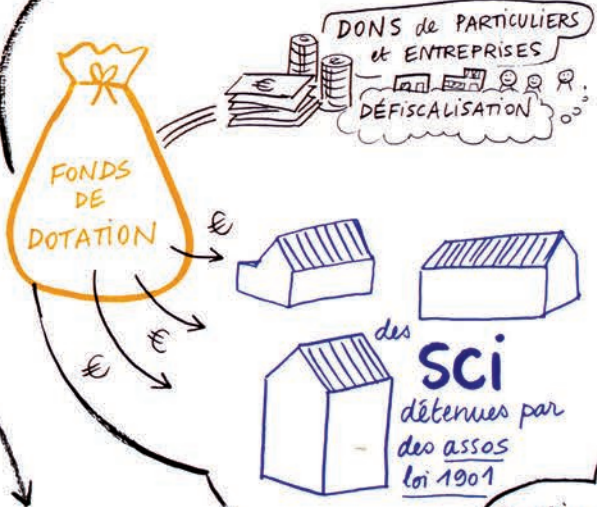 DONS de PARTICULIERS
et ENTREPRISES
€
DÉFISCALISATION
FONDS
DE
DOTATION
€
€
€
des
SCi
détenues par
des assos
loi 1901